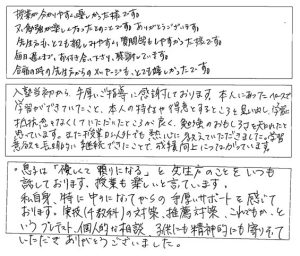 授業が分かりやすく楽しかった様です。
又、勉強が楽しくなったとのことです。ありがとうございます。
先生方がとても親しみやすく質問等もしやすかった様です。
毎日遅くまで、お付き合い下さり、感謝しています。
合格の時の先生方からのメッセージもとても嬉しかったです。
入塾当初から、手厚いご指導に感謝しております。本人にあったペースで
学習ができていたこと、本人の特性や得意とするところを見い出し、学習に
抵抗感をなくしていただいたところが良く、勉強のおもしろさを知れたと
思っています。また授業以外でも熱心に教えていただきました。学習
意欲を元切らさずに継続できたことで、成績向上につながっています。
・息子は「優しくて頼りになる」と先生方のことをいつも
話しております。授業も楽しいと言っています。
私自身、特に中3になってからの手厚いサポートを感じて
おります。実技（4教科）の対策、推薦対策、これでもか、と
いうプレテスト、個人的な相談、子供にも精神的にも寄りそって
いただきありがとうございました。